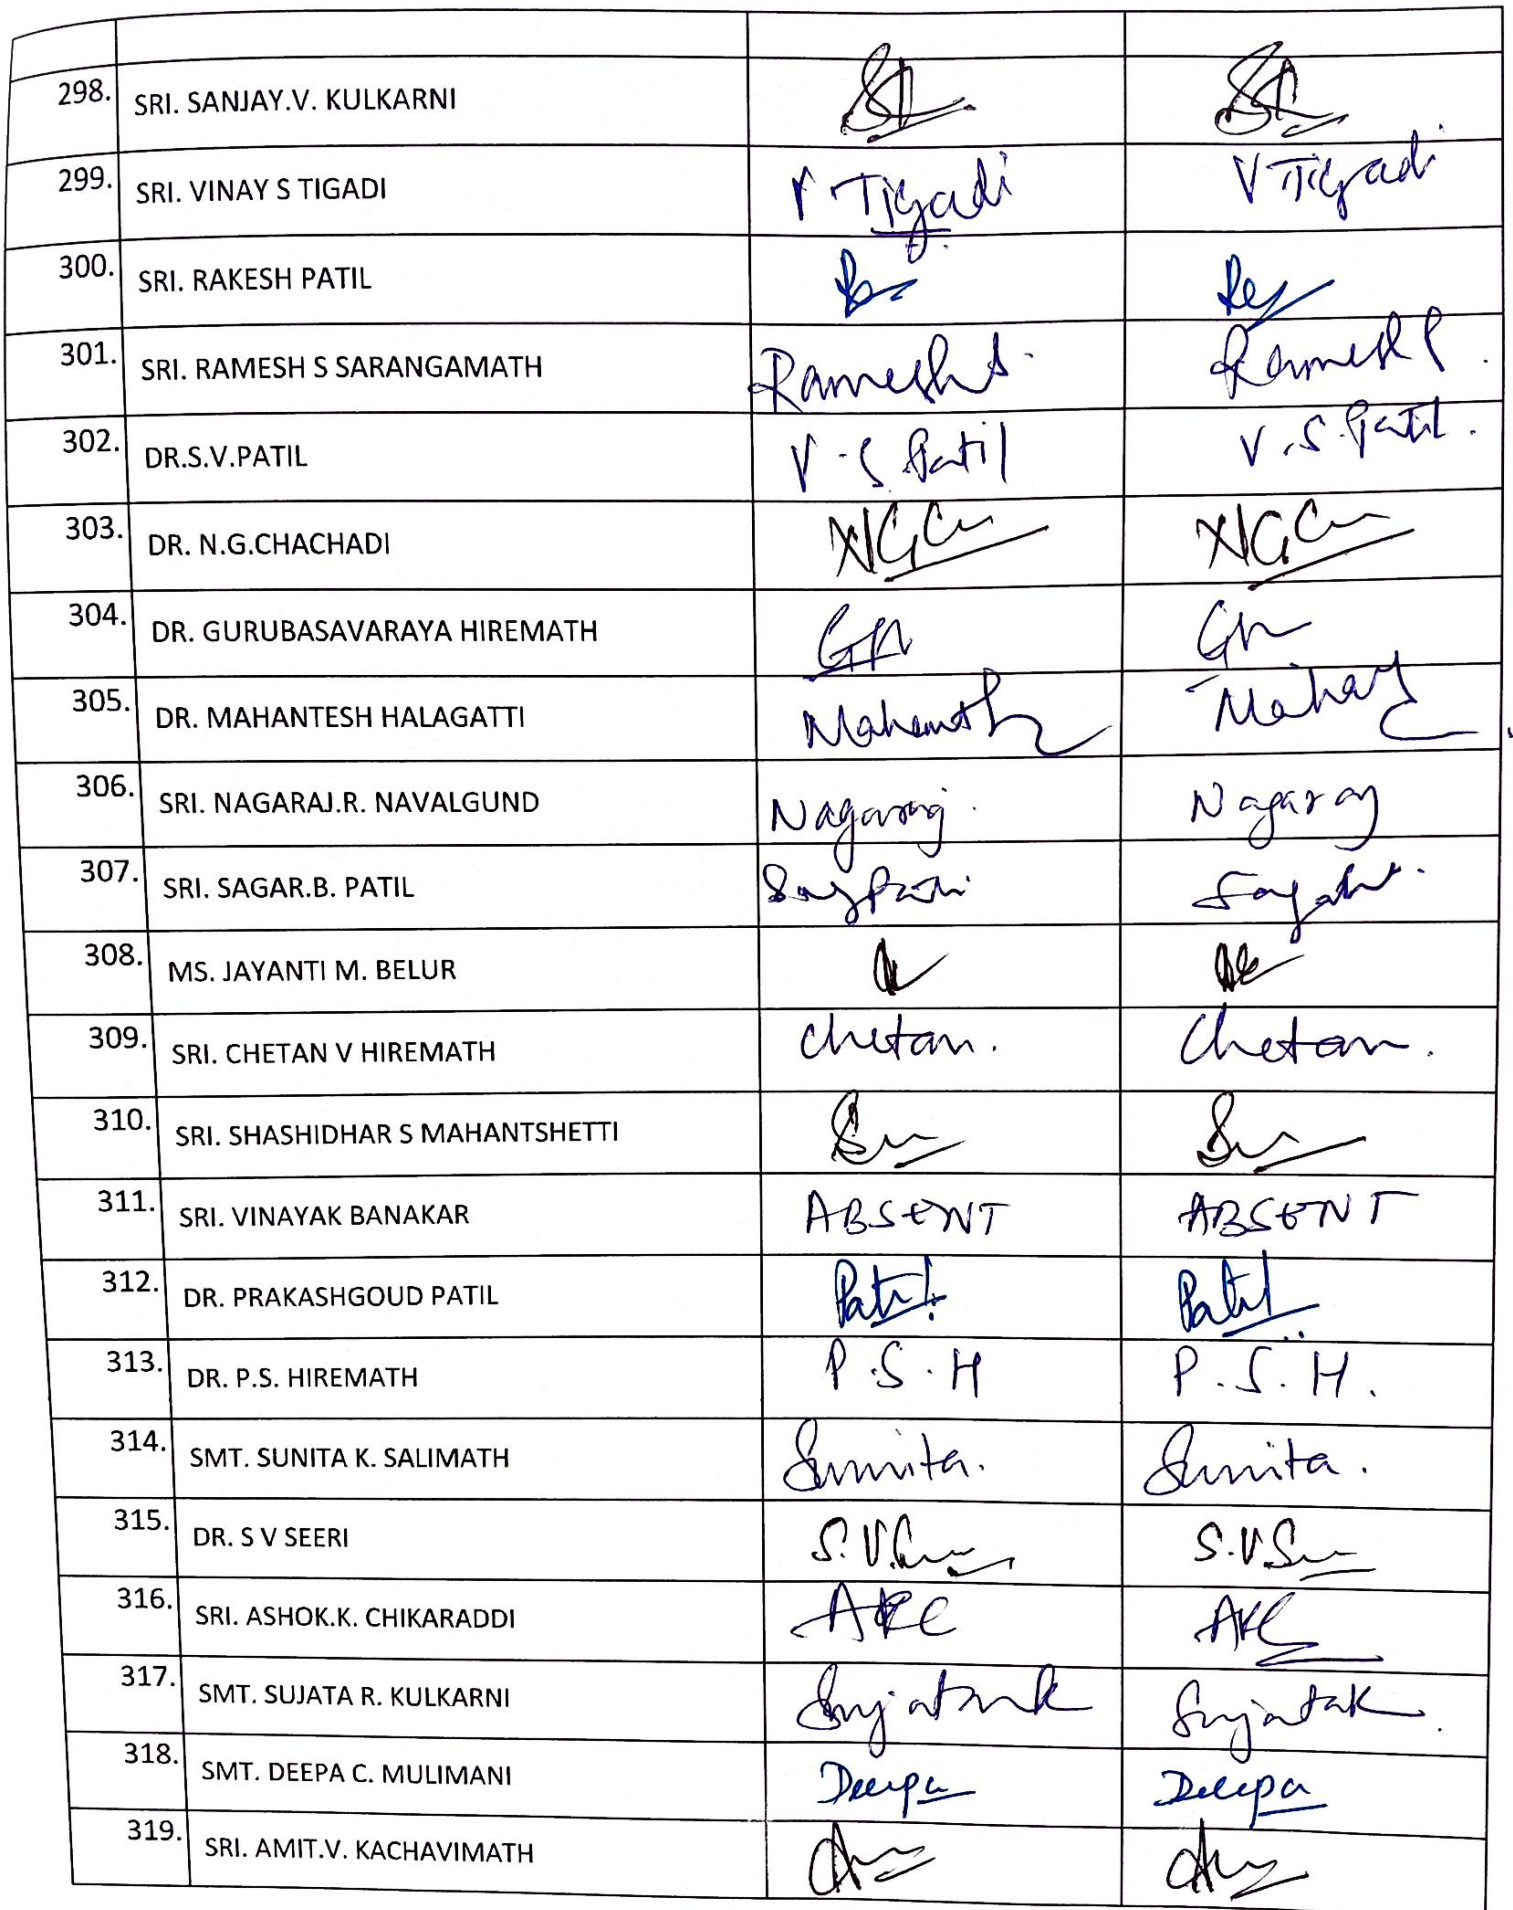 298. SRI. SANJAY.V. KULKARNI
299. SRI. VINAY S TIGADI V Tigadi V Tigadi
300. SRI. RAKESH PATIL
301. SRI. RAMESH S SARANGAMATH Ramesh S. Ramesh S.
302. DR.S.V.PATIL V.S.Patil V.S.Patil.
303. DR. N.G.CHACHADI
304. DR. GURUBASAVARAYA HIREMATH
305. DR. MAHANTESH HALAGATTI
306. SRI. NAGARAJ.R. NAVALGUND Nagaraj. Nagaraj
307. SRI. SAGAR.B. PATIL
308. MS. JAYANTI M. BELUR
309. SRI. CHETAN V HIREMATH Chetan. Chetan.
310. SRI. SHASHIDHAR S MAHANTSHETTI
311. SRI. VINAYAK BANAKAR ABSENT ABSENT
312. DR. PRAKASHGOUD PATIL Patil Patil
313. DR. P.S. HIREMATH P.S.H P.S.H.
314. SMT. SUNITA K. SALIMATH Sunita. Sunita.
315. DR. S V SEERI
316. SRI. ASHOK.K. CHIKARADDI AKC AKC
317. SMT. SUJATA R. KULKARNI
318. SMT. DEEPA C. MULIMANI Deepa Deepa
319. SRI. AMIT.V. KACHAVIMATH